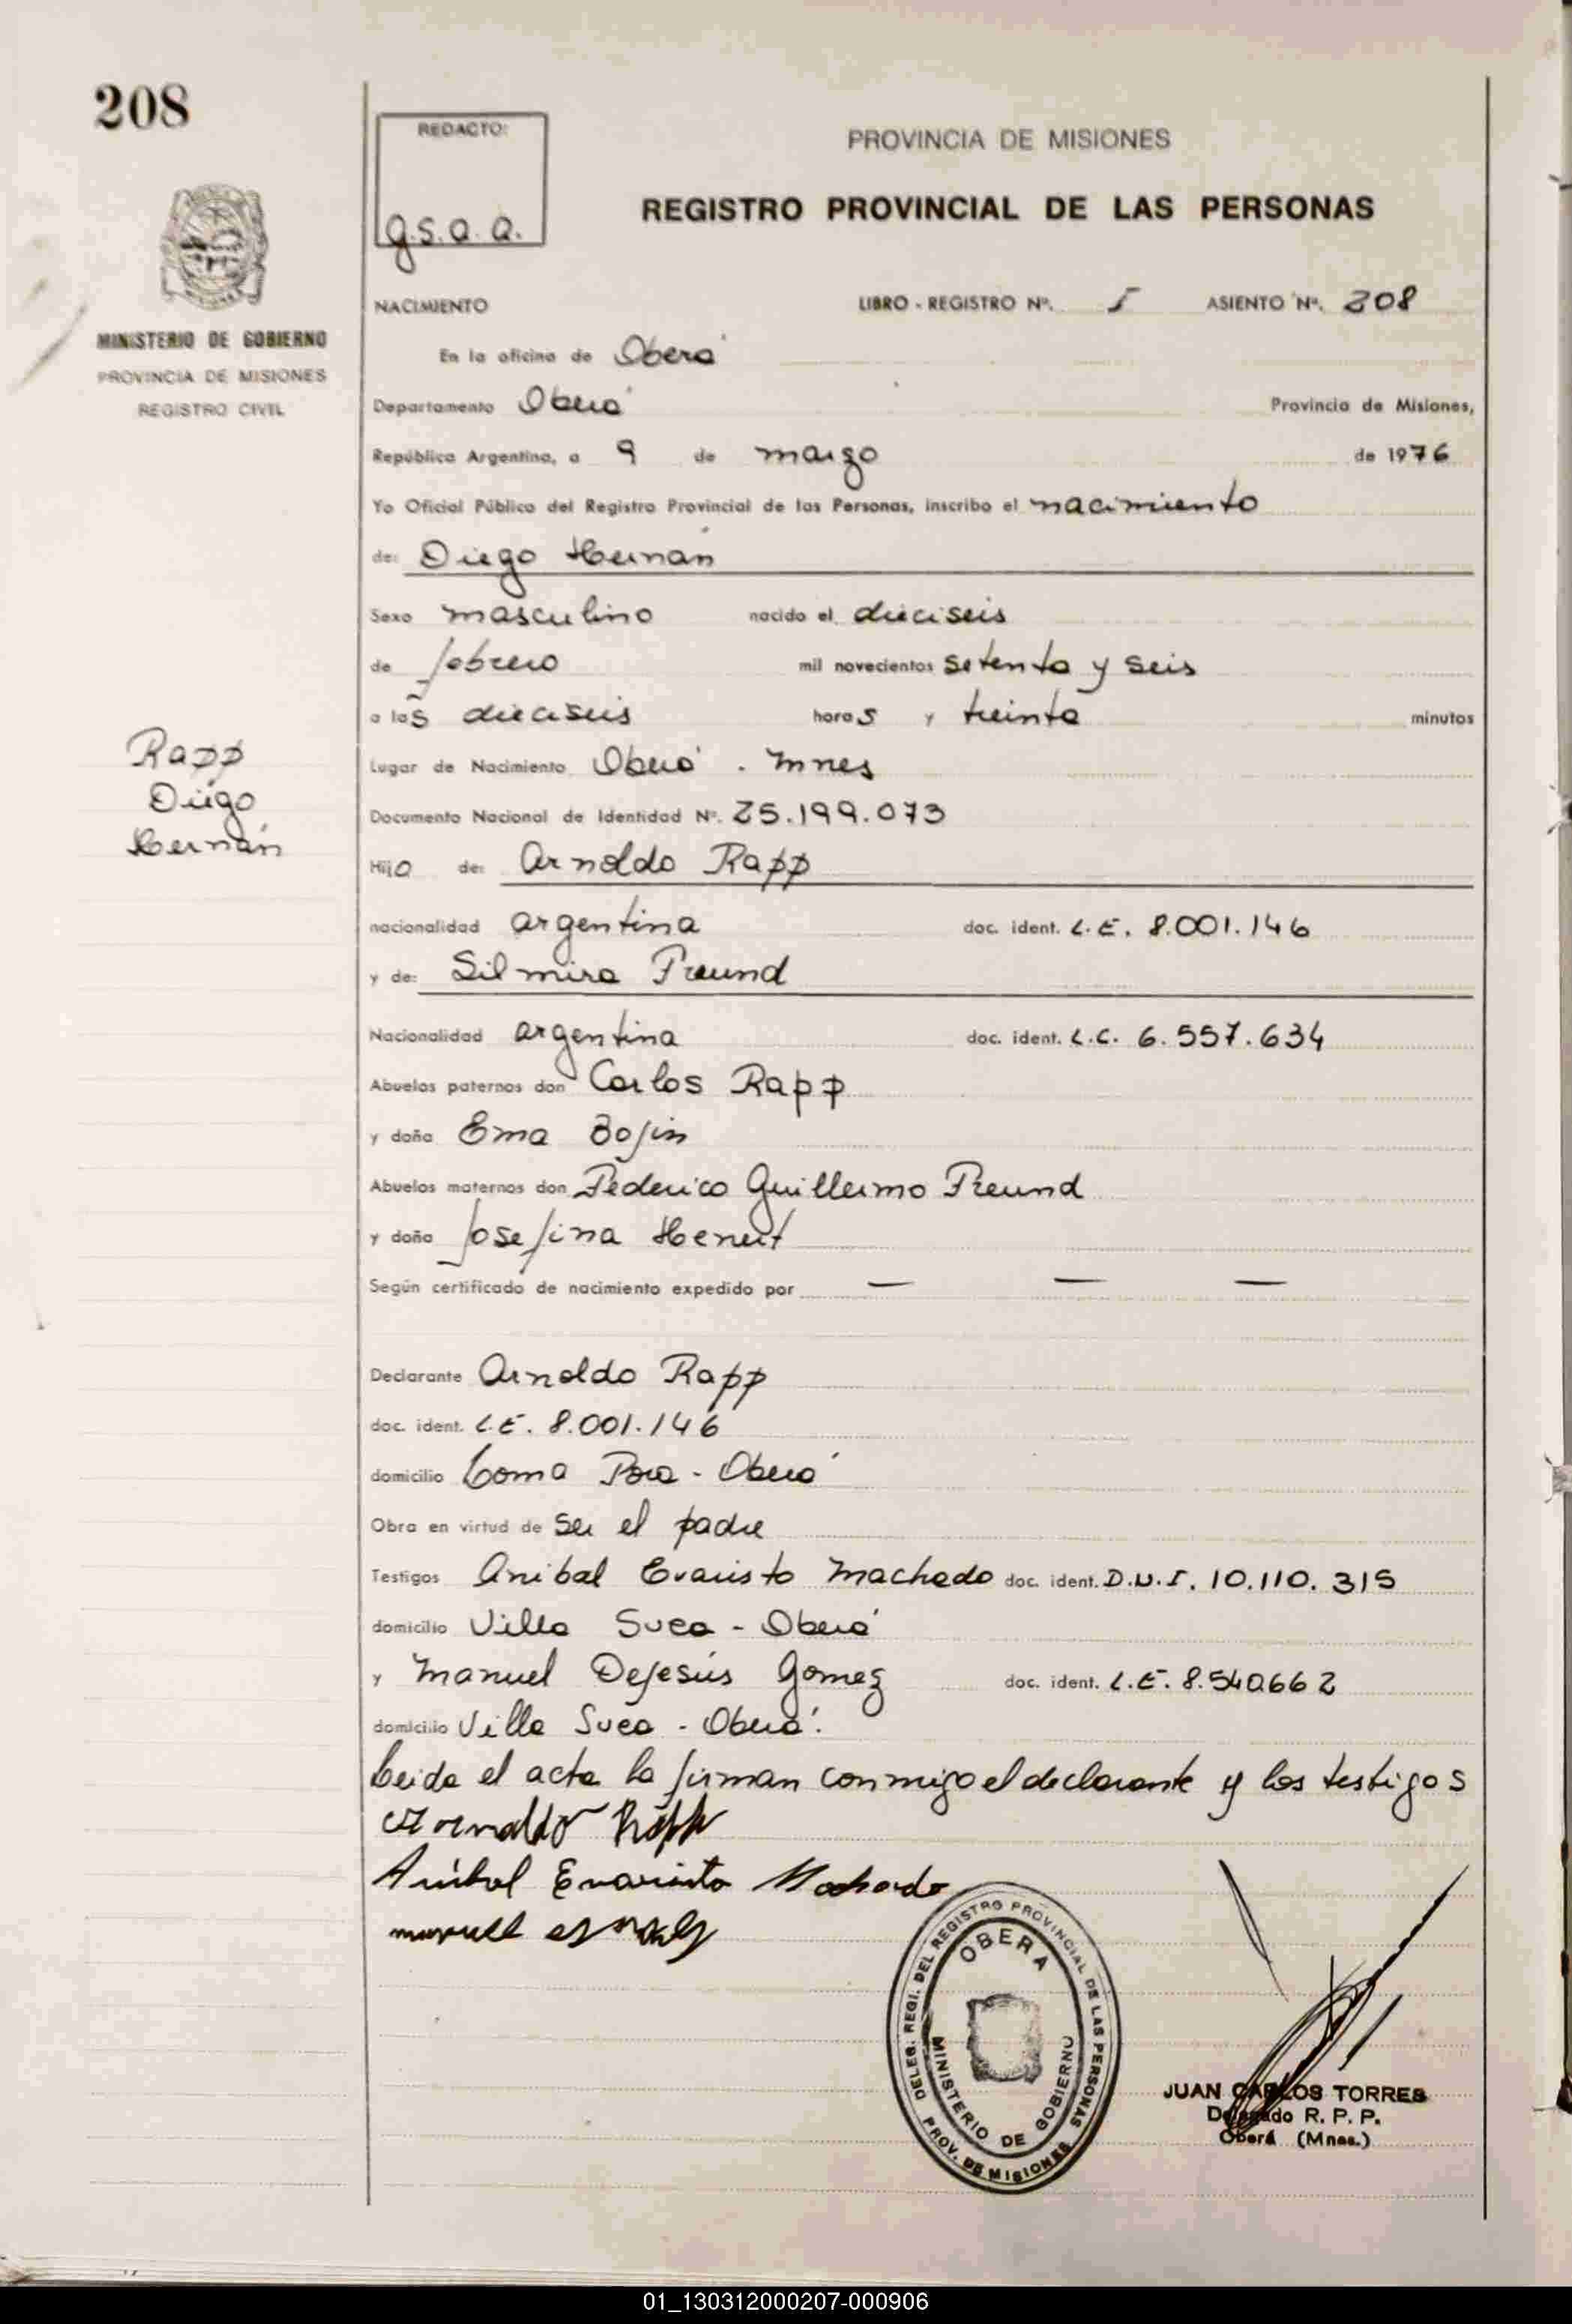 208
MINISTERIO DE GOBIERNO
PROVINCIA DE MISIONES
REGISTRO CIVIL
Rapp
Diego
Hernán
REDACTO:
g.s.a.a.
PROVINCIA DE MISIONES
REGISTRO PROVINCIAL DE LAS PERSONAS
NACIMIENTO LIBRO - REGISTRO Nº. I ASIENTO Nº. 208
En la oficina de Oberá
Departamento Oberá Provincia de Misiones,
República Argentina, a 9 de marzo de 1976
Yo Oficial Público del Registro Provincial de las Personas, inscribo el nacimiento
de: Diego Hernán
Sexo masculino nacido el dieciseis
de febrero mil novecientos setenta y seis
a las dieciseis horas y treinta minutos
Lugar de Nacimiento Oberá . Mnes
Documento Nacional de Identidad Nº. 25.199.073
Hijo de: Arnoldo Rapp
nacionalidad argentina doc. ident. L.E. 8.001.146
y de: Silmira Freund
Nacionalidad argentina doc. ident. L.C. 6.557.634
Abuelos paternos don Carlos Rapp
y doña Ema Bojin
Abuelos maternos don Federico Guillermo Freund
y doña Josefina
Según certificado de nacimiento expedido por — — —
Declarante Arnoldo Rapp
doc. ident. L.E. 8.001.146
domicilio Loma Pora - Oberá
Obra en virtud de ser el padre
Testigos Anibal Evaristo Machado doc. ident. D.N.I. 10.110.315
domicilio Villa Suea - Oberá
y Manuel Dejesús Gomez doc. ident. L.E. 8.540.662
domicilio Villa Suea - Oberá.
Leida el acta la firman conmigo el declarante y los testigos
Arnoldo Rapp
Anibal Evaristo Machado
DELEG. REGI. DEL REGISTRO PROVINCIAL DE LAS PERSONAS
OBERA
MINISTERIO DE GOBIERNO
PROV. DE MISIONES
JUAN CARLOS TORRES
Delegado R. P. P.
Oberá (Mnes.)
01_130312000207-000906